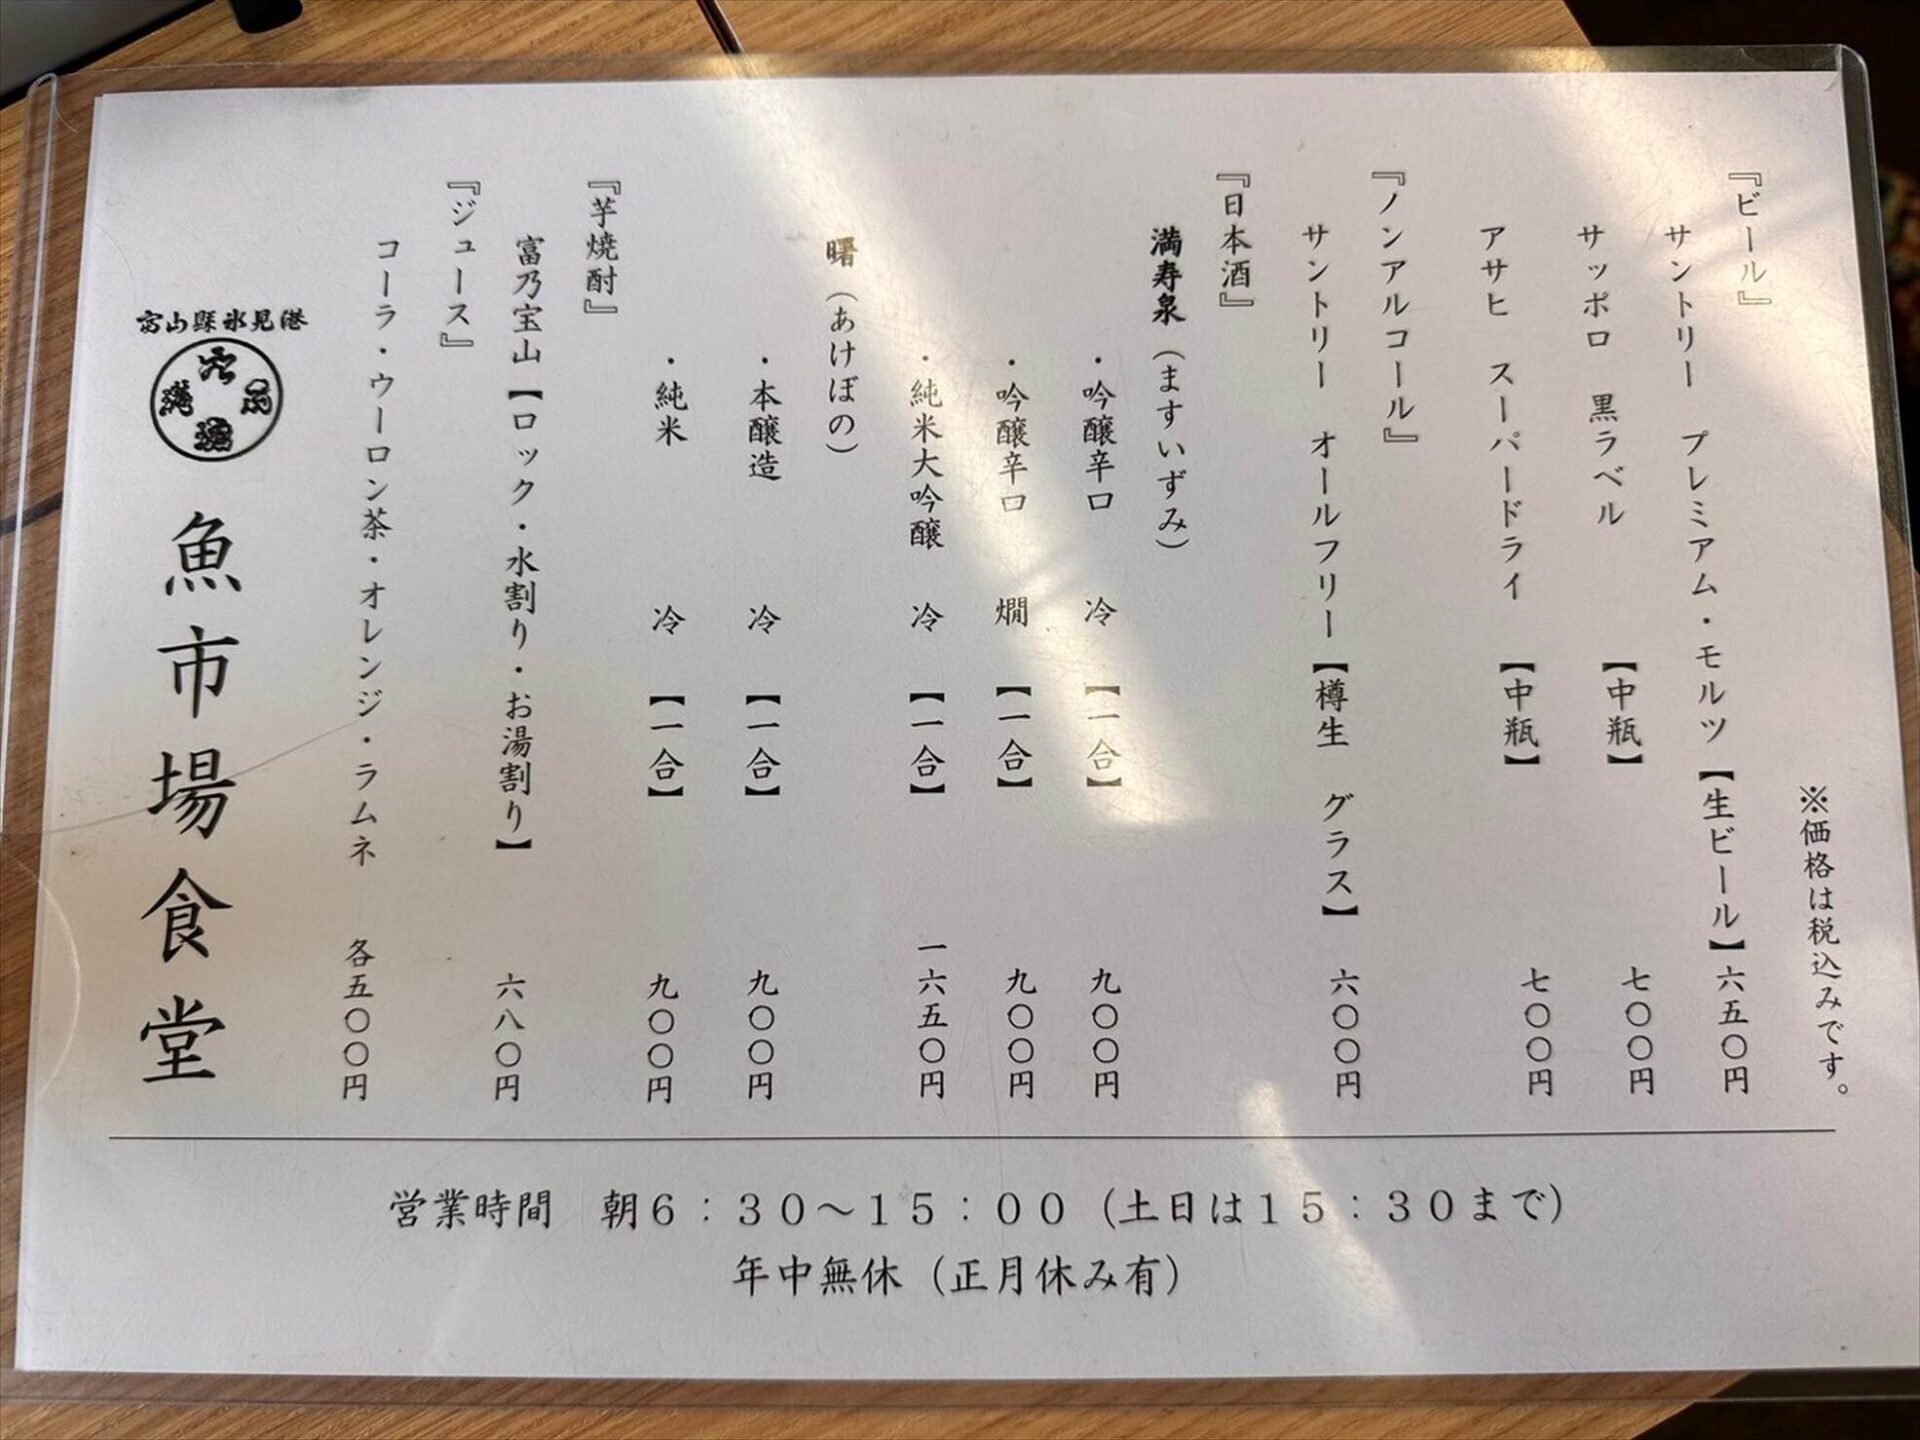 ※価格は税込みです。
『ビール』
サントリー プレミアム・モルツ【生ビール】六五〇円
サッポロ 黒ラベル 【中瓶】 七〇〇円
アサヒ スーパードライ 【中瓶】 七〇〇円
『ノンアルコール』
サントリー オールフリー【樽生 グラス】 六〇〇円
『日本酒』
満寿泉(ますいずみ)
・吟醸辛口 冷 【一合】 九〇〇円
・吟醸辛口 燗 【一合】 九〇〇円
・純米大吟醸 冷 【一合】 一六五〇円
曙(あけぼの)
・本醸造 冷 【一合】 九〇〇円
・純米 冷 【一合】 九〇〇円
『芋焼酎』
富乃宝山【ロック・水割り・お湯割り】 六八〇円
『ジュース』
コーラ・ウーロン茶・オレンジ・ラムネ 各五〇〇円
富山縣氷見港
魚市場食堂
営業時間 朝6:30~15:00(土日は15:30まで)
年中無休(正月休み有)